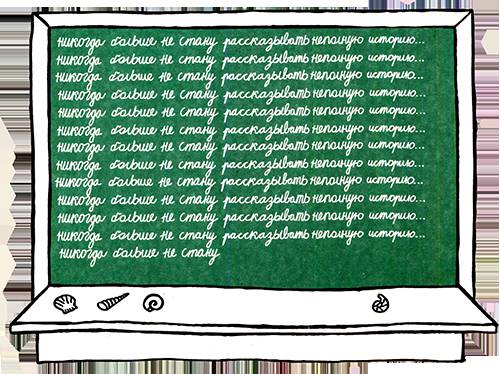 никогда больше не стану рассказывать неполную историю...
никогда больше не стану рассказывать неполную историю...
никогда больше не стану рассказывать неполную историю...
никогда больше не стану рассказывать неполную историю...
никогда больше не стану рассказывать неполную историю...
никогда больше не стану рассказывать неполную историю...
никогда больше не стану рассказывать неполную историю...
никогда больше не стану рассказывать неполную историю...
никогда больше не стану рассказывать неполную историю...
никогда больше не стану рассказывать неполную историю...
никогда больше не стану рассказывать неполную историю...
никогда больше не стану рассказывать неполную историю...
никогда больше не стану